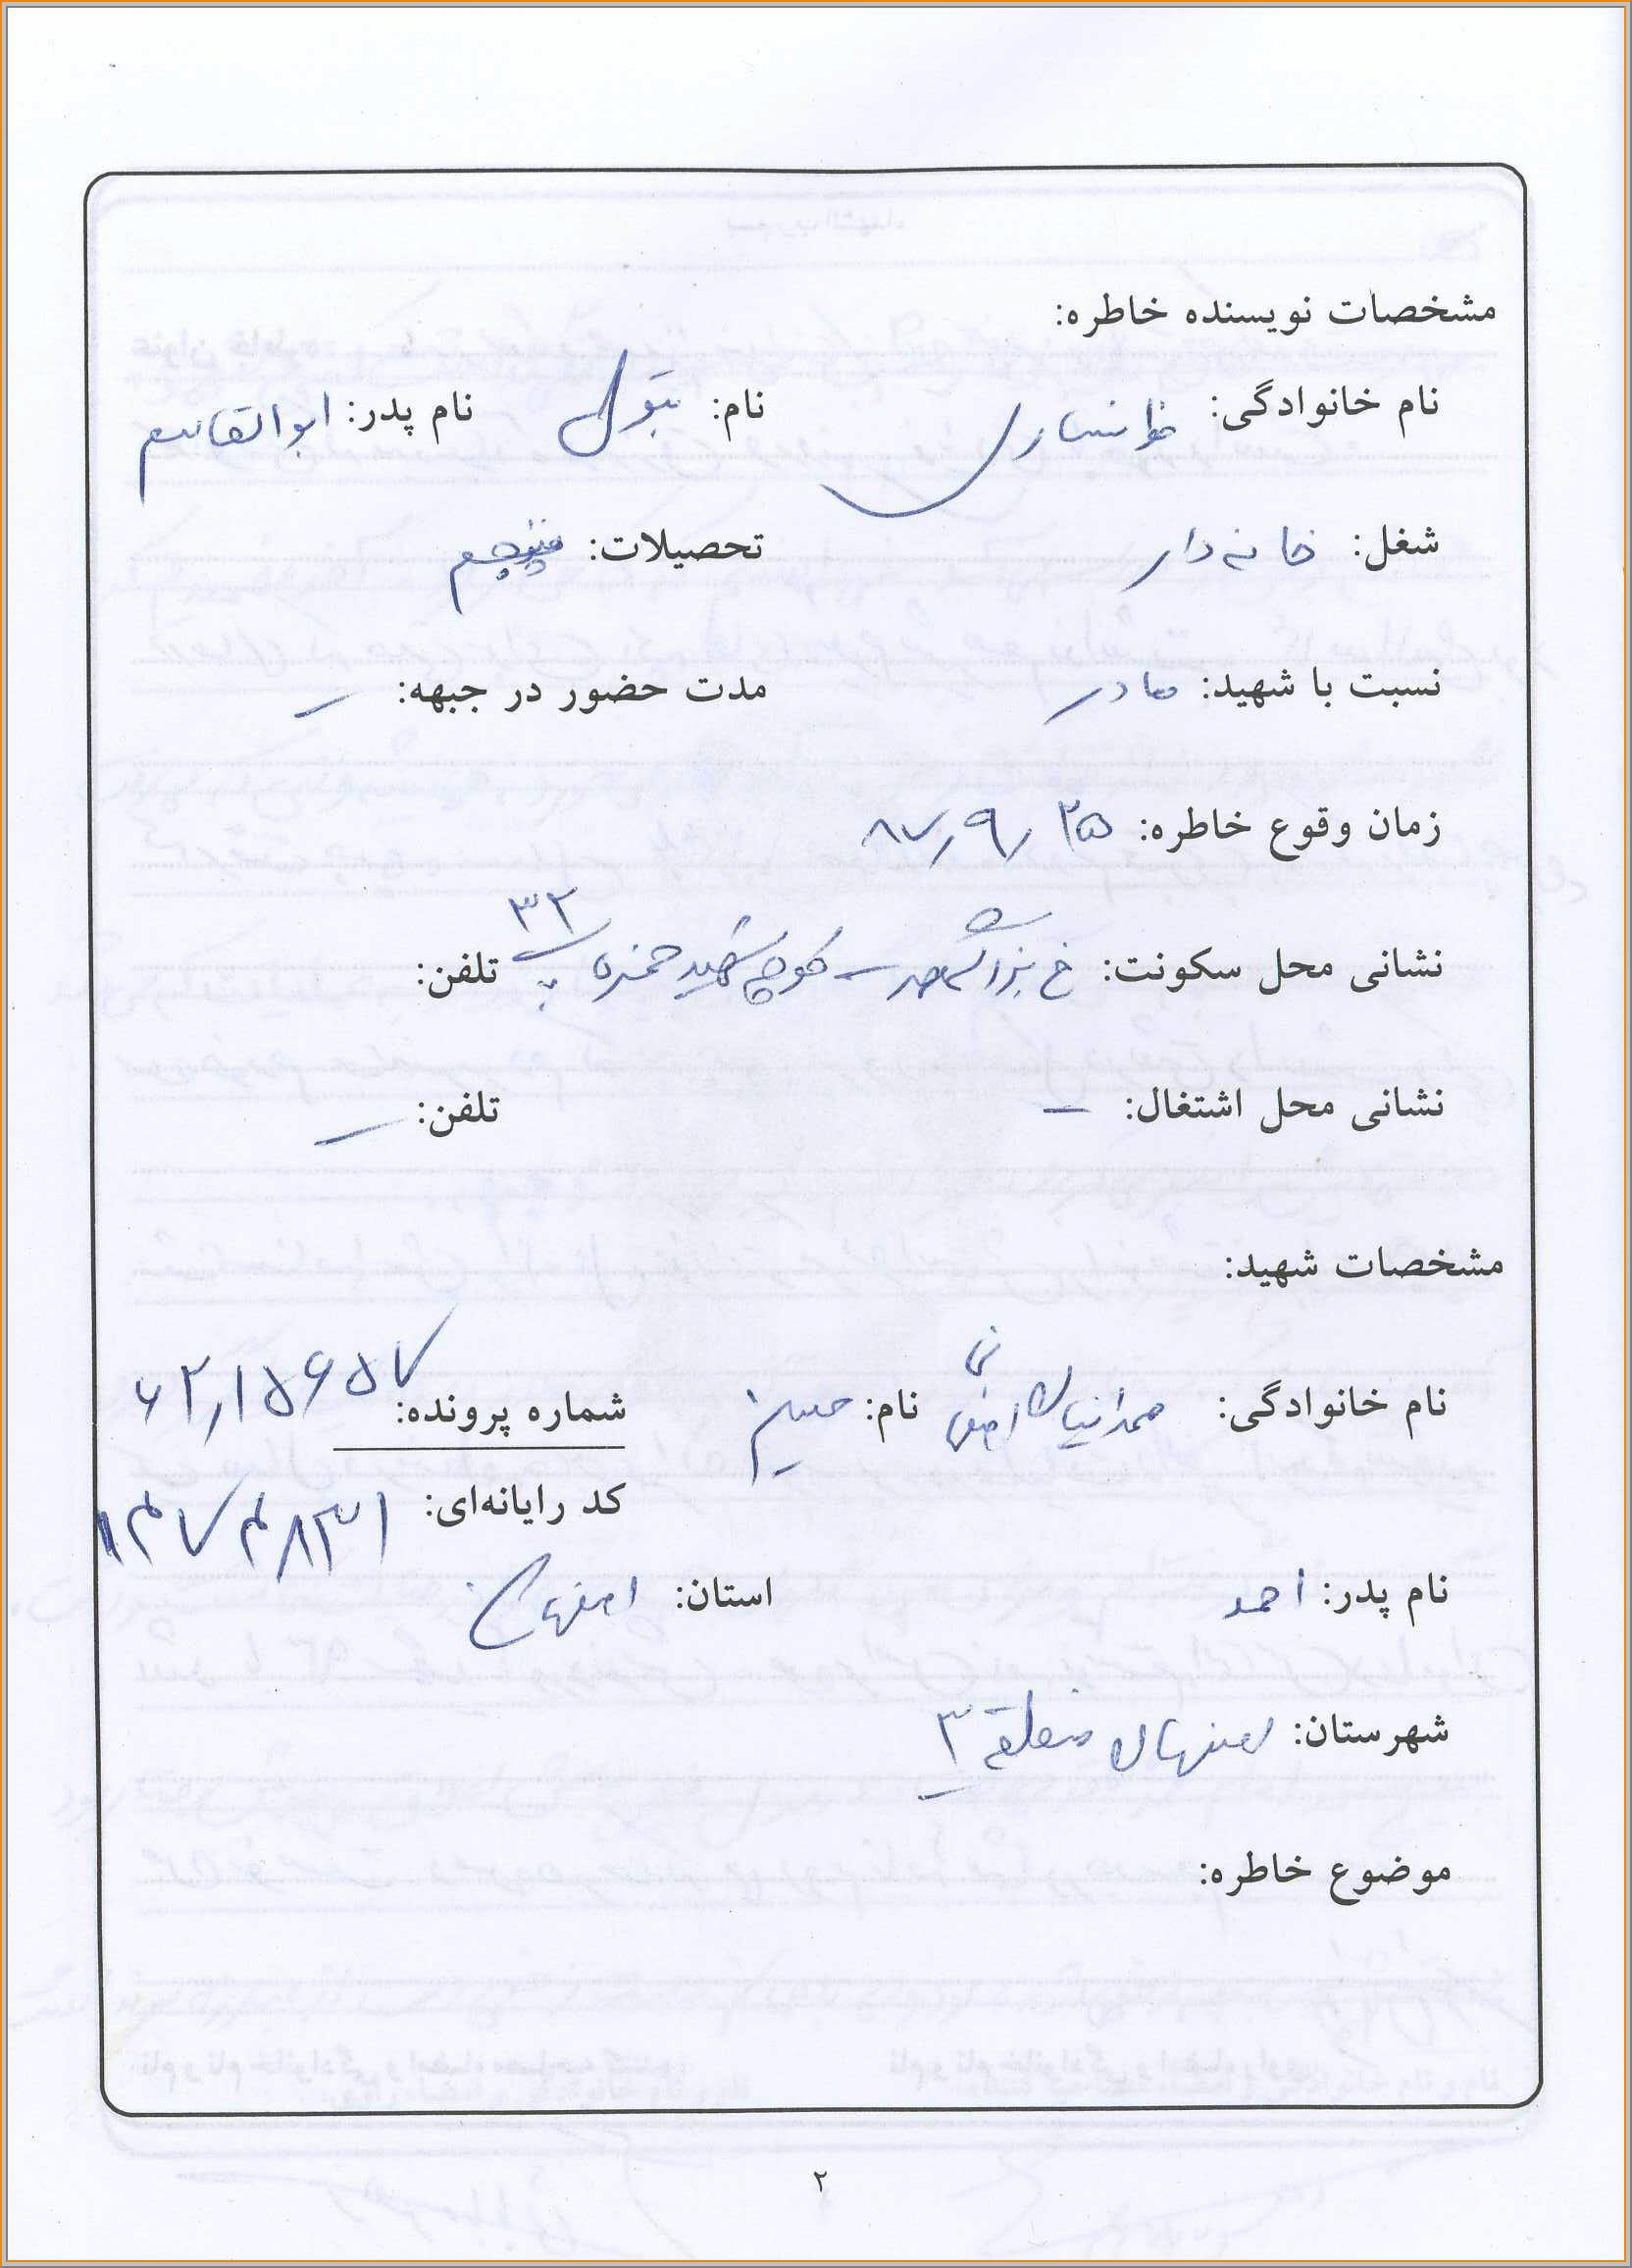 مشخصات نویسنده خاطره:
نام خانوادگی: خوانساری نام: بتول نام پدر: ابوالقاسم
شغل: خانه دار تحصیلات: پنجم
نسبت با شهید: مادر مدت حضور در جبهه: –
زمان وقوع خاطره: ۸۷٫۹٫۲۵
نشانی محل سکونت: خ بزرگمهر – کوچه شهید حمزه پ ۳۲ تلفن:
نشانی محل اشتغال: – تلفن: –
مشخصات شهید:
نام خانوادگی: نام: حسین شماره پرونده: ۶۲٫۱۵۶۵۷
کد رایانه‌ای:
نام پدر: احمد استان: اصفهان
شهرستان: اصفهان منطقه ۳
موضوع خاطره:
۲